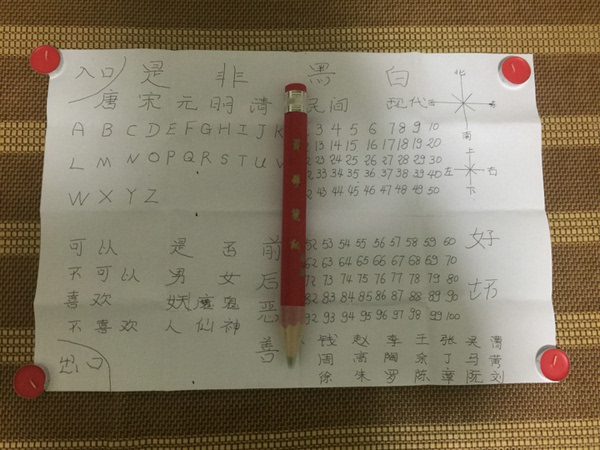 入口 是 非 黑 白
唐 宋 元 明 清 民间 现代
北
南
A B C D E F G H I J K
L M N O P Q R S T U V
W X Y Z
3 4 5 6 7 8 9 10
2 13 14 15 16 17 18 19 20
2 23 24 25 26 27 28 29 30
2 33 34 35 36 37 38 39 40
2 43 44 45 46 47 48 49 50
上
左 右
下
可以 是 否 前
不可以 男 女 后
喜欢 妖 魔 鬼 恶
不喜欢 人 仙 神 善
52 53 54 55 56 57 58 59 60
62 63 64 65 66 67 68 69 70
72 73 74 75 76 77 78 79 80
82 83 84 85 86 87 88 89 90
92 93 94 95 96 97 98 99 100
好
坏
钱 赵 李 王 张 吴
周 高 陶 余 丁 马 黄
徐 朱 罗 陈 章 阮 刘
出口